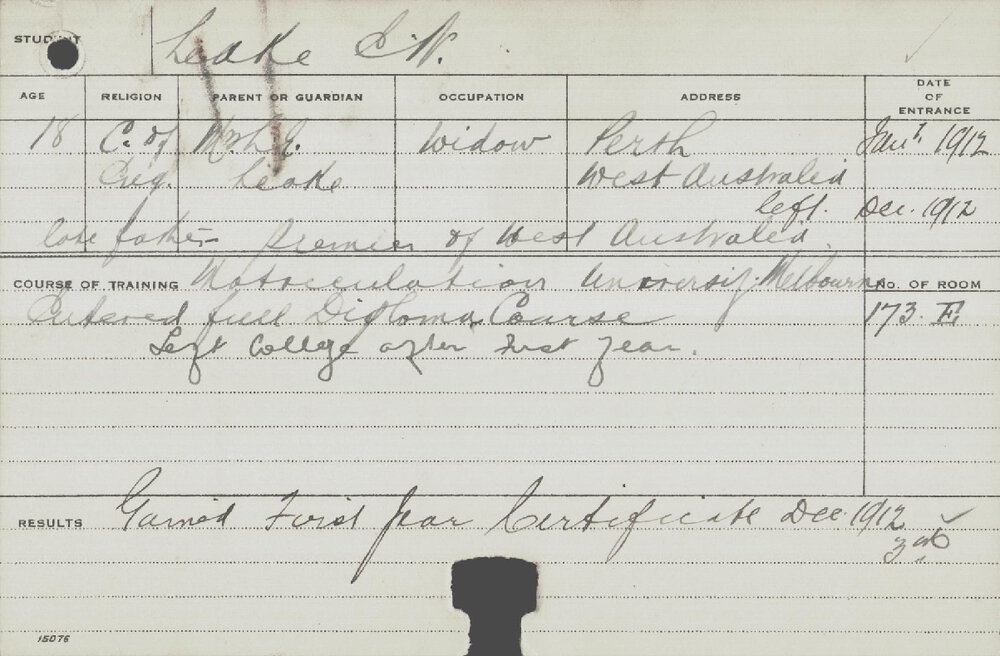 STUDENT Leake
AGE RELIGION PARENT OR GUARDIAN OCCUPATION ADDRESS DATE OF ENTRANCE
18 C. of Widow Perth 1912
Eng. Leake West Australia
left. Dec. 1912
late father Premier of West Australia.
COURSE OF TRAINING Matriculation University Melbourne NO. OF ROOM
Entered full Diploma Course 173. E
Left College after First Year.
RESULTS Gained First Year Certificate Dec. 1912
15076